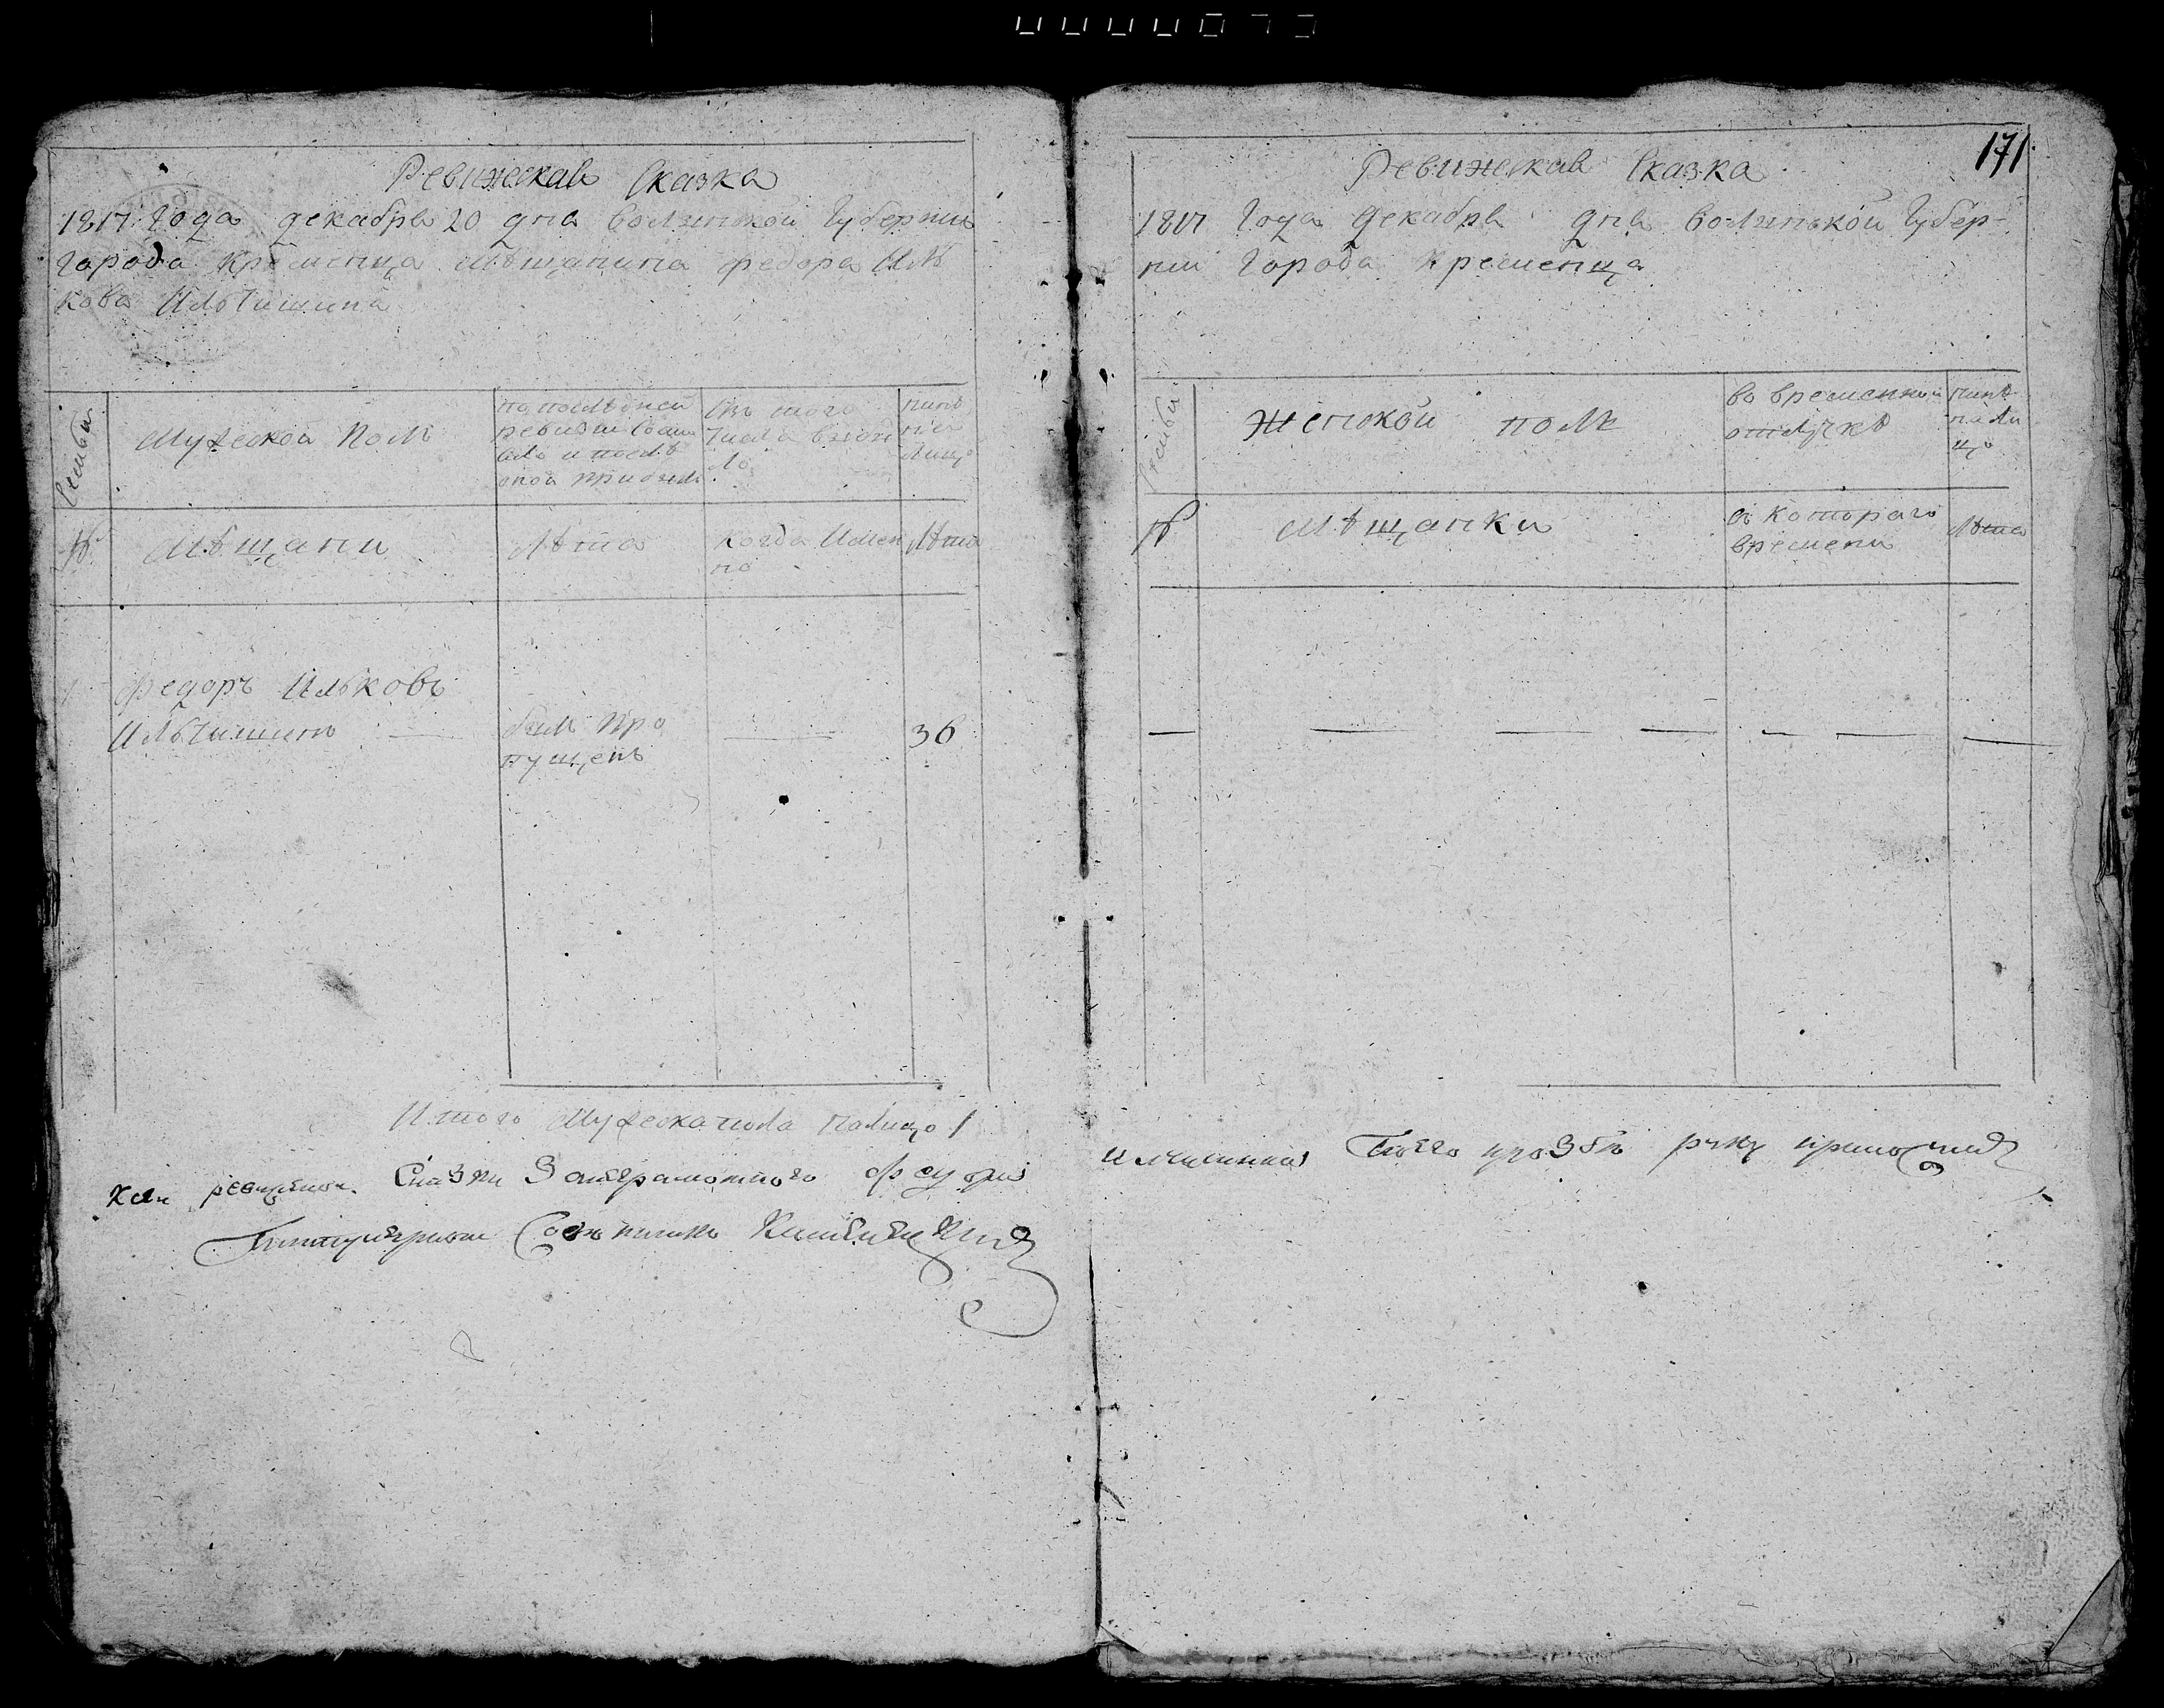 Ревижская Сказка
1817 Года декабря 20 дня Волинской Губернии
Города Кременца мѣщанина федора Иль
кова Ильчишина
Семьи
Мужеской Полъ
По последней
ревизии состо
яло и послѣ
оной прибыло
Изъ того
числа выбы
ло
нинѣ
на
лицо
№
Мѣщани
Лѣта
Когда Имен
но
Лѣта
1
федоръ Ильковъ
Ильчишинъ
билъ про
пущенъ
36
Итого Мужеска пола налицо 1
К сей ревижской Сказки За неграмотного Федора
Титулярной Совѣтникъ
171
Ревижская Сказка
1817 Года Декабря дня Волинской Губер-
нии Города Кременца
Семьи
Женской полъ
во временной
отлучкѣ
нинѣ
на ли
цо
№
Мѣщанки
съ котораго
времени
Лѣта
Ильчишина его прозбѣ руку приложилъ